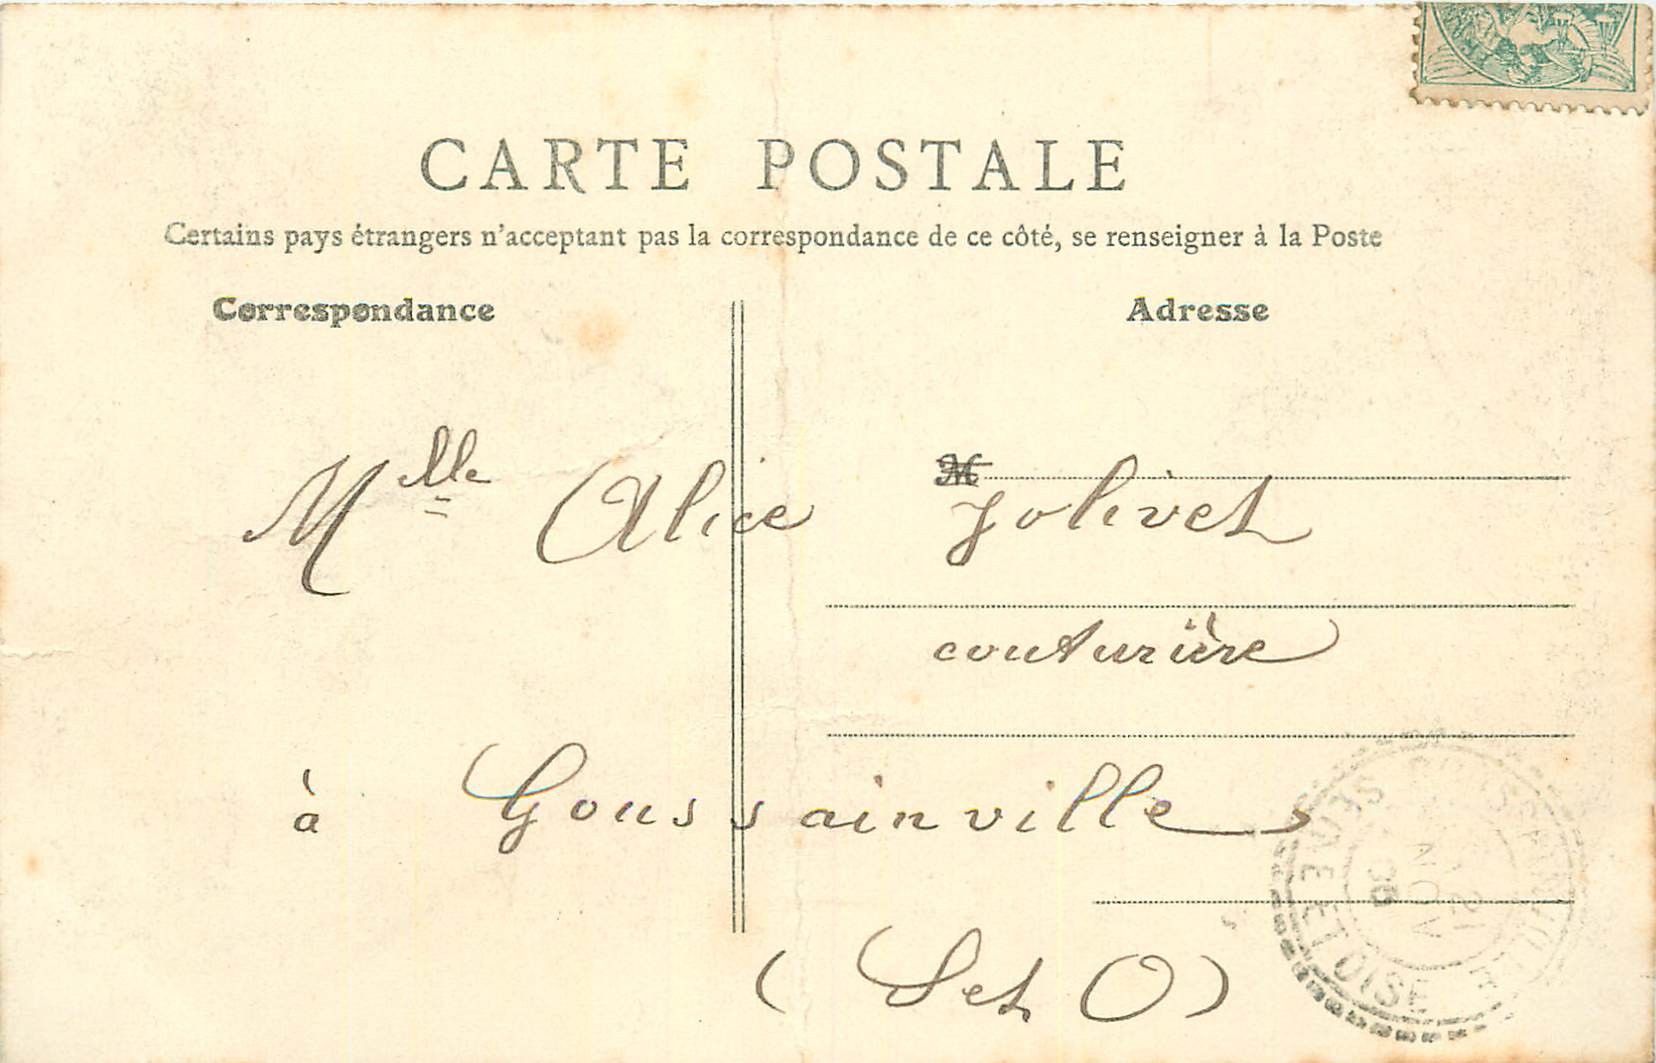 CARTE POSTALE
Certains pays étrangers n'acceptant pas la correspondance de ce côté, se renseigner à la Poste
Correspondance
Adresse
M
Mlle Alice Jolivet
couturière
à Goussainvilles
(S et O)
SEINE ET OISE
21
NOV